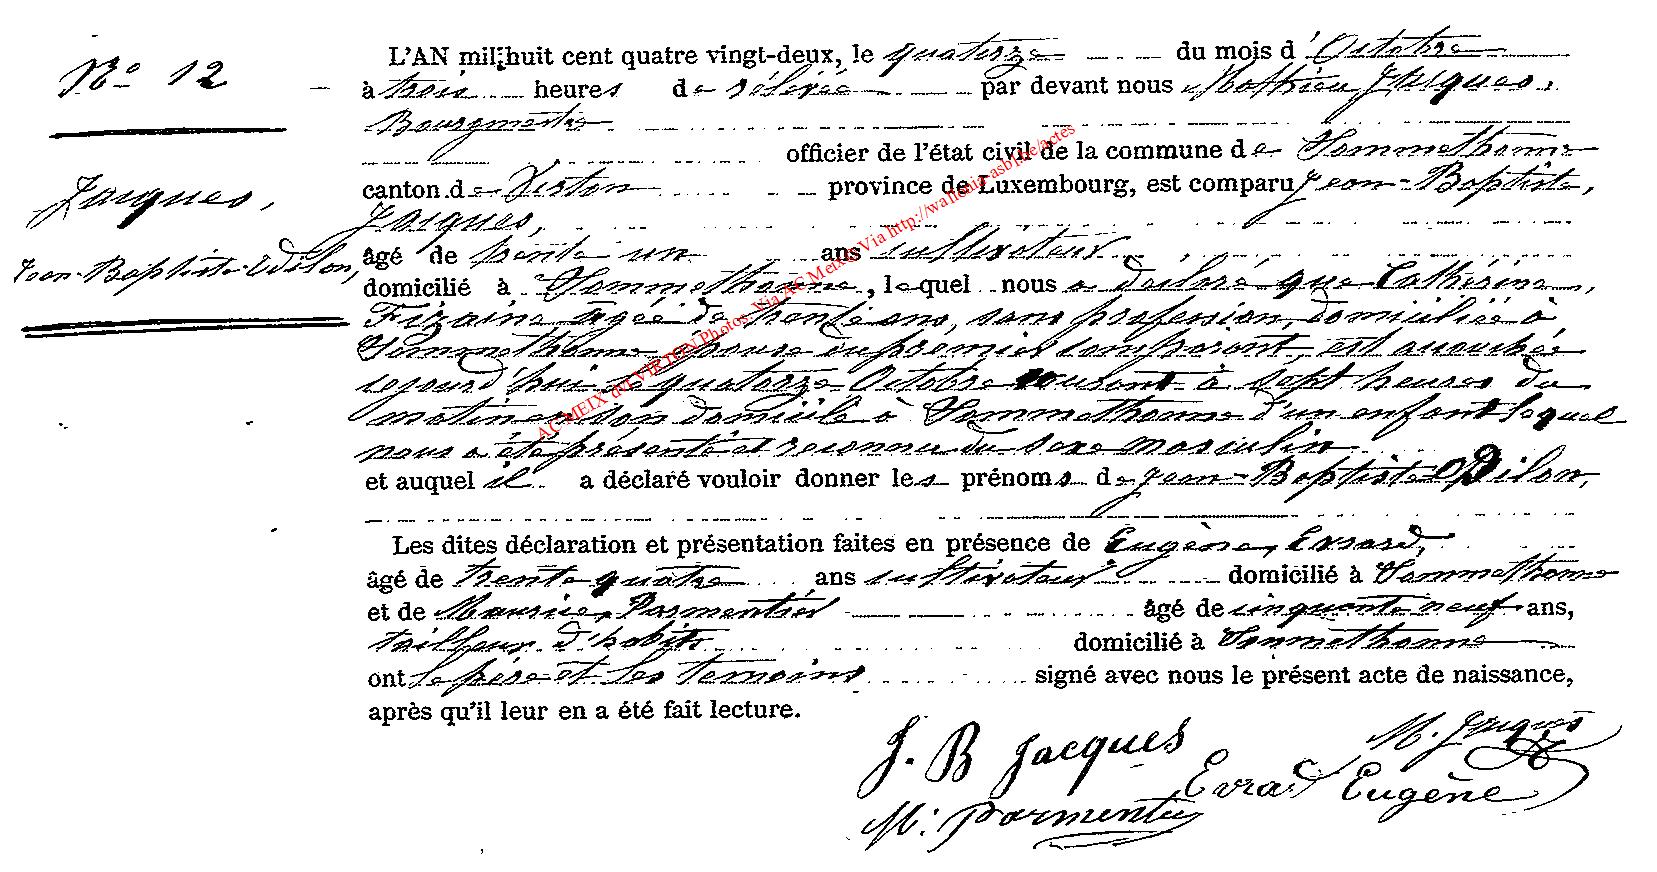 No 12
Jacques,
Jean-Baptiste-Odilon,
L'AN mil huit cent quatre vingt-deux, le quatorze du mois d'Octobre
à trois heures de rélévée par devant nous Mathieu Jacques,
Bourgmestre
officier de l'état civil de la commune de Sommethonne
canton de Virton province de Luxembourg, est comparu Jean-Baptiste,
Jacques,
âgé de trente un ans cultivateur
domicilié à Sommethonne, lequel nous a declaré que Cathérine,
Fizaine agée de trente ans, sans profession, domiciliée à
Sommethonne épouse du premier comparant, est accouchée
aujourd'hui le quatorze Octobre courant à sept heures du
matin en son domicile à Sommethonne d'un enfant lequel
nous a été présenté et reconnu du sexe masculin
et auquel il a déclaré vouloir donner les prénoms de Jean-Baptiste Odilon,
Les dites déclaration et présentation faites en présence de Eugène, Evrard,
âgé de trente quatre ans cultivateur domicilié à Sommethonne
et de Maurice, Parmentier âgé de cinquante neuf ans,
tailleur d'habits domicilié à Sommethonne
ont le père et les temoins signé avec nous le présent acte de naissance,
après qu'il leur en a été fait lecture.
J. B Jacques
M. Jacques
Evrard Eugène
M. Parmentier
AC MEIX dvt VIRTON Photos Via AC Meix & Via http://wallonia-asbl.be/actes